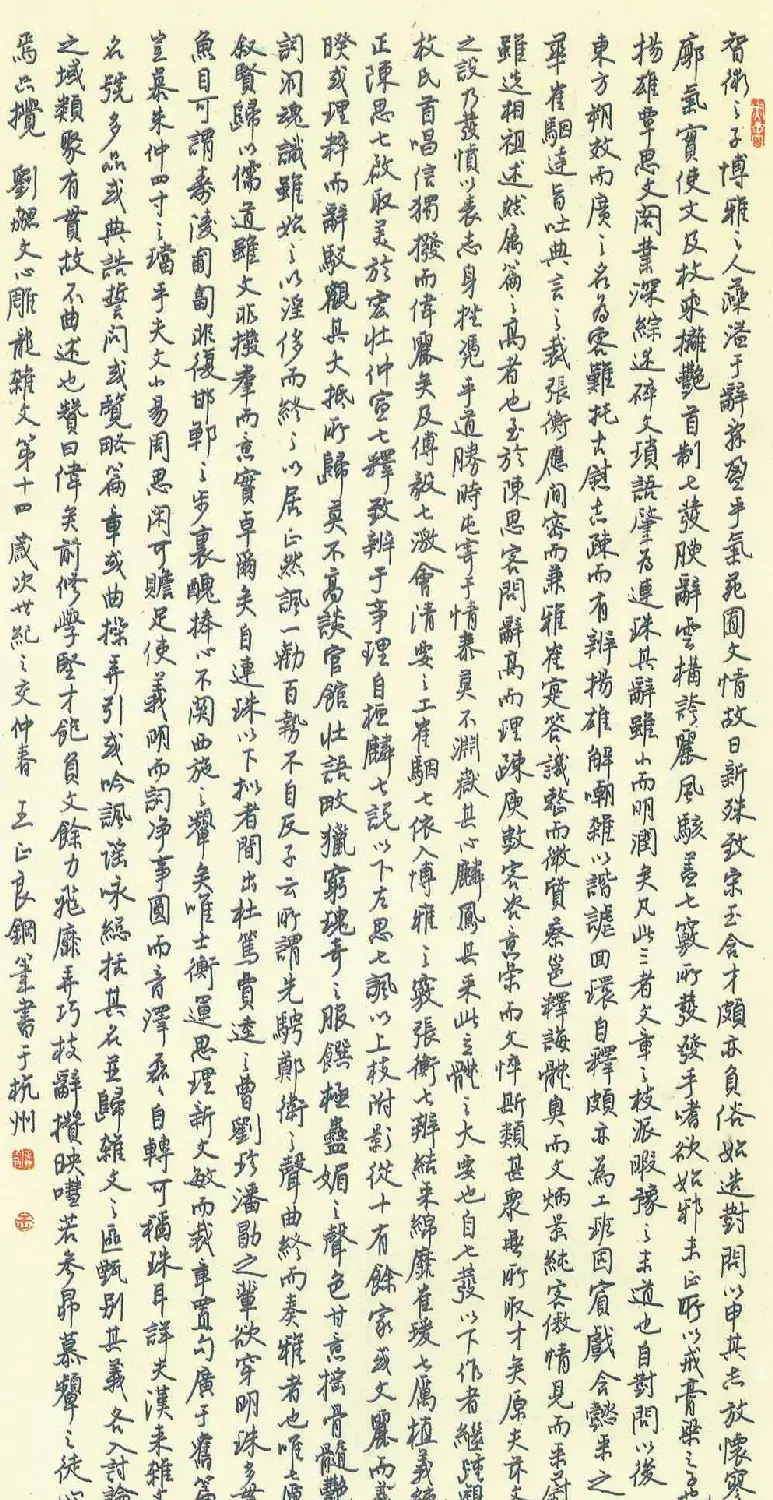 智術之子博雅之人藻溢于辭辭盈乎氣苑囿文情故日新殊致宋玉含才頗亦負俗始造對問以申其志放懷寥
廓氣實使文及枚乘攡艷首制七發腴辭雲構誇麗風駭蓋七竅所發發乎嗜欲始邪末正所以戒膏粱之子也
揚雄覃思文闊業深綜述碎文瑣語肇為連珠其辭雖小而明潤矣凡此三者文章之枝派暇豫之末造也自對問以後
東方朔效而廣之名為客難托古慰志疎而有辨揚雄解嘲雜以諧謔回環自釋頗亦為工班固賓戲含懿采之
華崔駰達旨吐典言之裁張衡應間密而兼雅崔寔答譏整而微質蔡邕釋誨體奧而文炳景純客傲情見而采蔚
雖迭相祖述然屬篇之高者也至於陳思客問辭高而理疎庾敳客咨意榮而文悴斯類甚衆無所取才矣原夫茲文
之設乃發憤以表志身挫憑乎道勝時屯寄于情泰莫不淵嶽其心麟鳳其采此立體之大要也自七發以下作者繼踵觀
枚氏首唱信獨拔而偉麗矣及傅毅七激會清要之工崔駰七依入博雅之竅張衡七辨結采綿靡崔瑗七厲植義純
正陳思七啟取美於宏壯仲宣七釋致辨于事理自桓麟七説以下左思七諷以上枝附影從十有餘家或文麗而義
睽或理粹而辭駁觀其大抵所歸莫不高談宮館壯語畋獵窮瑰奇之服饌極蠱媚之聲色甘意搖骨髓艷
詞洞魂識雖始之以淫侈而終之以居正然諷一勸百勢不自反子雲所謂先騁鄭衛之聲曲終而奏雅者也唯七厲
叙賢歸以儒道雖文非拔羣而意實卓爾矣自連珠以下拟者間出杜篤賈逵之曹劉珍潘勖之輩欲穿明珠多貫
魚目可謂壽陵匍匐非復邯鄲之步裏醜捧心不関西施之顰矣唯士衡運思理新文敏而裁章置句廣于舊篇
豈慕朱仲四寸之璫乎夫文小易周思闲可贍足使義明而詞净事圓而音澤磊磊自轉可稱珠耳詳夫漢來雜文
名號多品或典誥誓問或覽略篇章或曲操弄引或吟諷謡咏總括其名並歸雜文之區甄别其義各入討論
之域類聚有貫故不曲述也贊曰偉矣前修學堅才飽負文餘力飛靡弄巧枝辭攢映嘒若參昴慕顰之徒心
焉只攪　劉勰文心雕龍雜文第十四　歲次世紀之交仲春　王正良鋼筆書于杭州